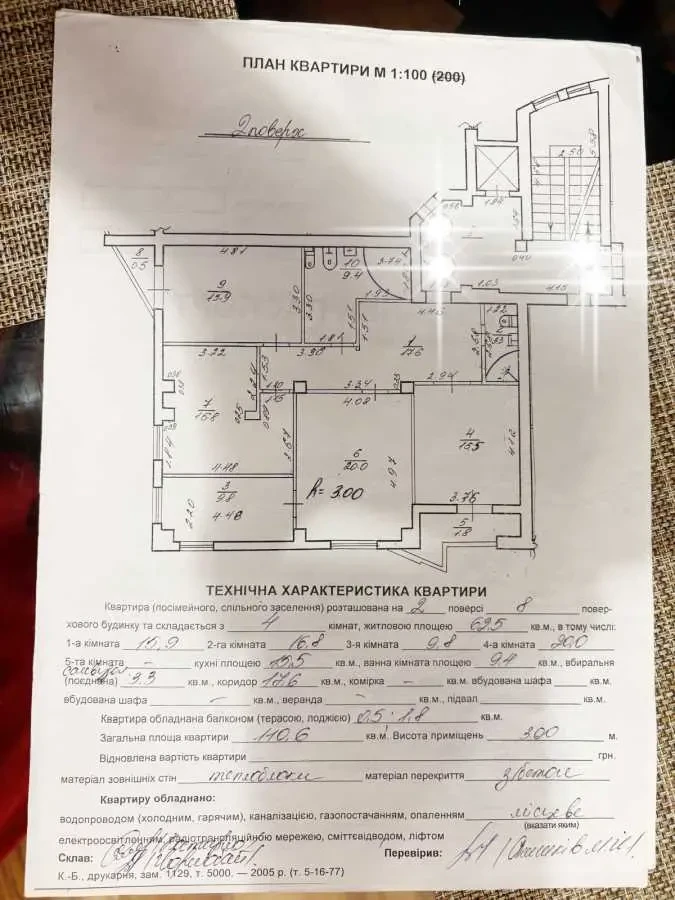 ПЛАН КВАРТИРИ М 1:100 (200)
2 поверх
0.56
1.94
2.50
5.58
8
0.5
4.81
9
15.9
3.30
3.30
10
9.4
3.74
1.93
1.81
1.51
1.51
1.03
4.15
4.45
1.22
1
17.6
2
3.22
1.53
3.90
2.24
3.24
2.94
7
16.8
0.25
4.08
4
15.5
4.12
1.84
4.48
3.67
6
20.0
4.97
h = 3.00
3
9.8
2.20
4.48
3.76
5
1.8
ТЕХНІЧНА ХАРАКТЕРИСТИКА КВАРТИРИ
Квартира (посімейного, спільного заселення) розташована на 2 поверсі 8 повер-
хового будинку та складається з 4 кімнат, житловою площею 62.5 кв.м., в тому числі:
1-а кімната 15,9 2-га кімната 16,8 3-я кімната 9,8 4-а кімната 20,0
5-та кімната – кухні площею 15.5 кв.м., ванна кімната площею 9.4 кв.м., вбиральня
санвузол
(поєднана) 3.3 кв.м., коридор 17.6 кв.м., комірка – кв.м. вбудована шафа кв.м.
вбудована шафа – кв.м., веранда – кв.м., підвал кв.м.
Квартира обладнана балконом (терасою, лоджією) 0.5; 1.8 кв.м.
Загальна площа квартири 110.6 кв.м. Висота приміщень 3.00 м.
Відновлена вартість квартири грн.
матеріал зовнішніх стін теплоблоки матеріал перекриття з/бетон
Квартиру обладнано:
водопроводом (холодним, гарячим), каналізацією, газопостачанням, опаленням місцеве
(вказати яким)
електроосвітленням, радіотрансляційною мережею, сміттєвідводом, ліфтом
Склав: Перевірив:
К.-Б., друкарня, зам. 1129, т. 5000. — 2005 р. (т. 5-16-77)